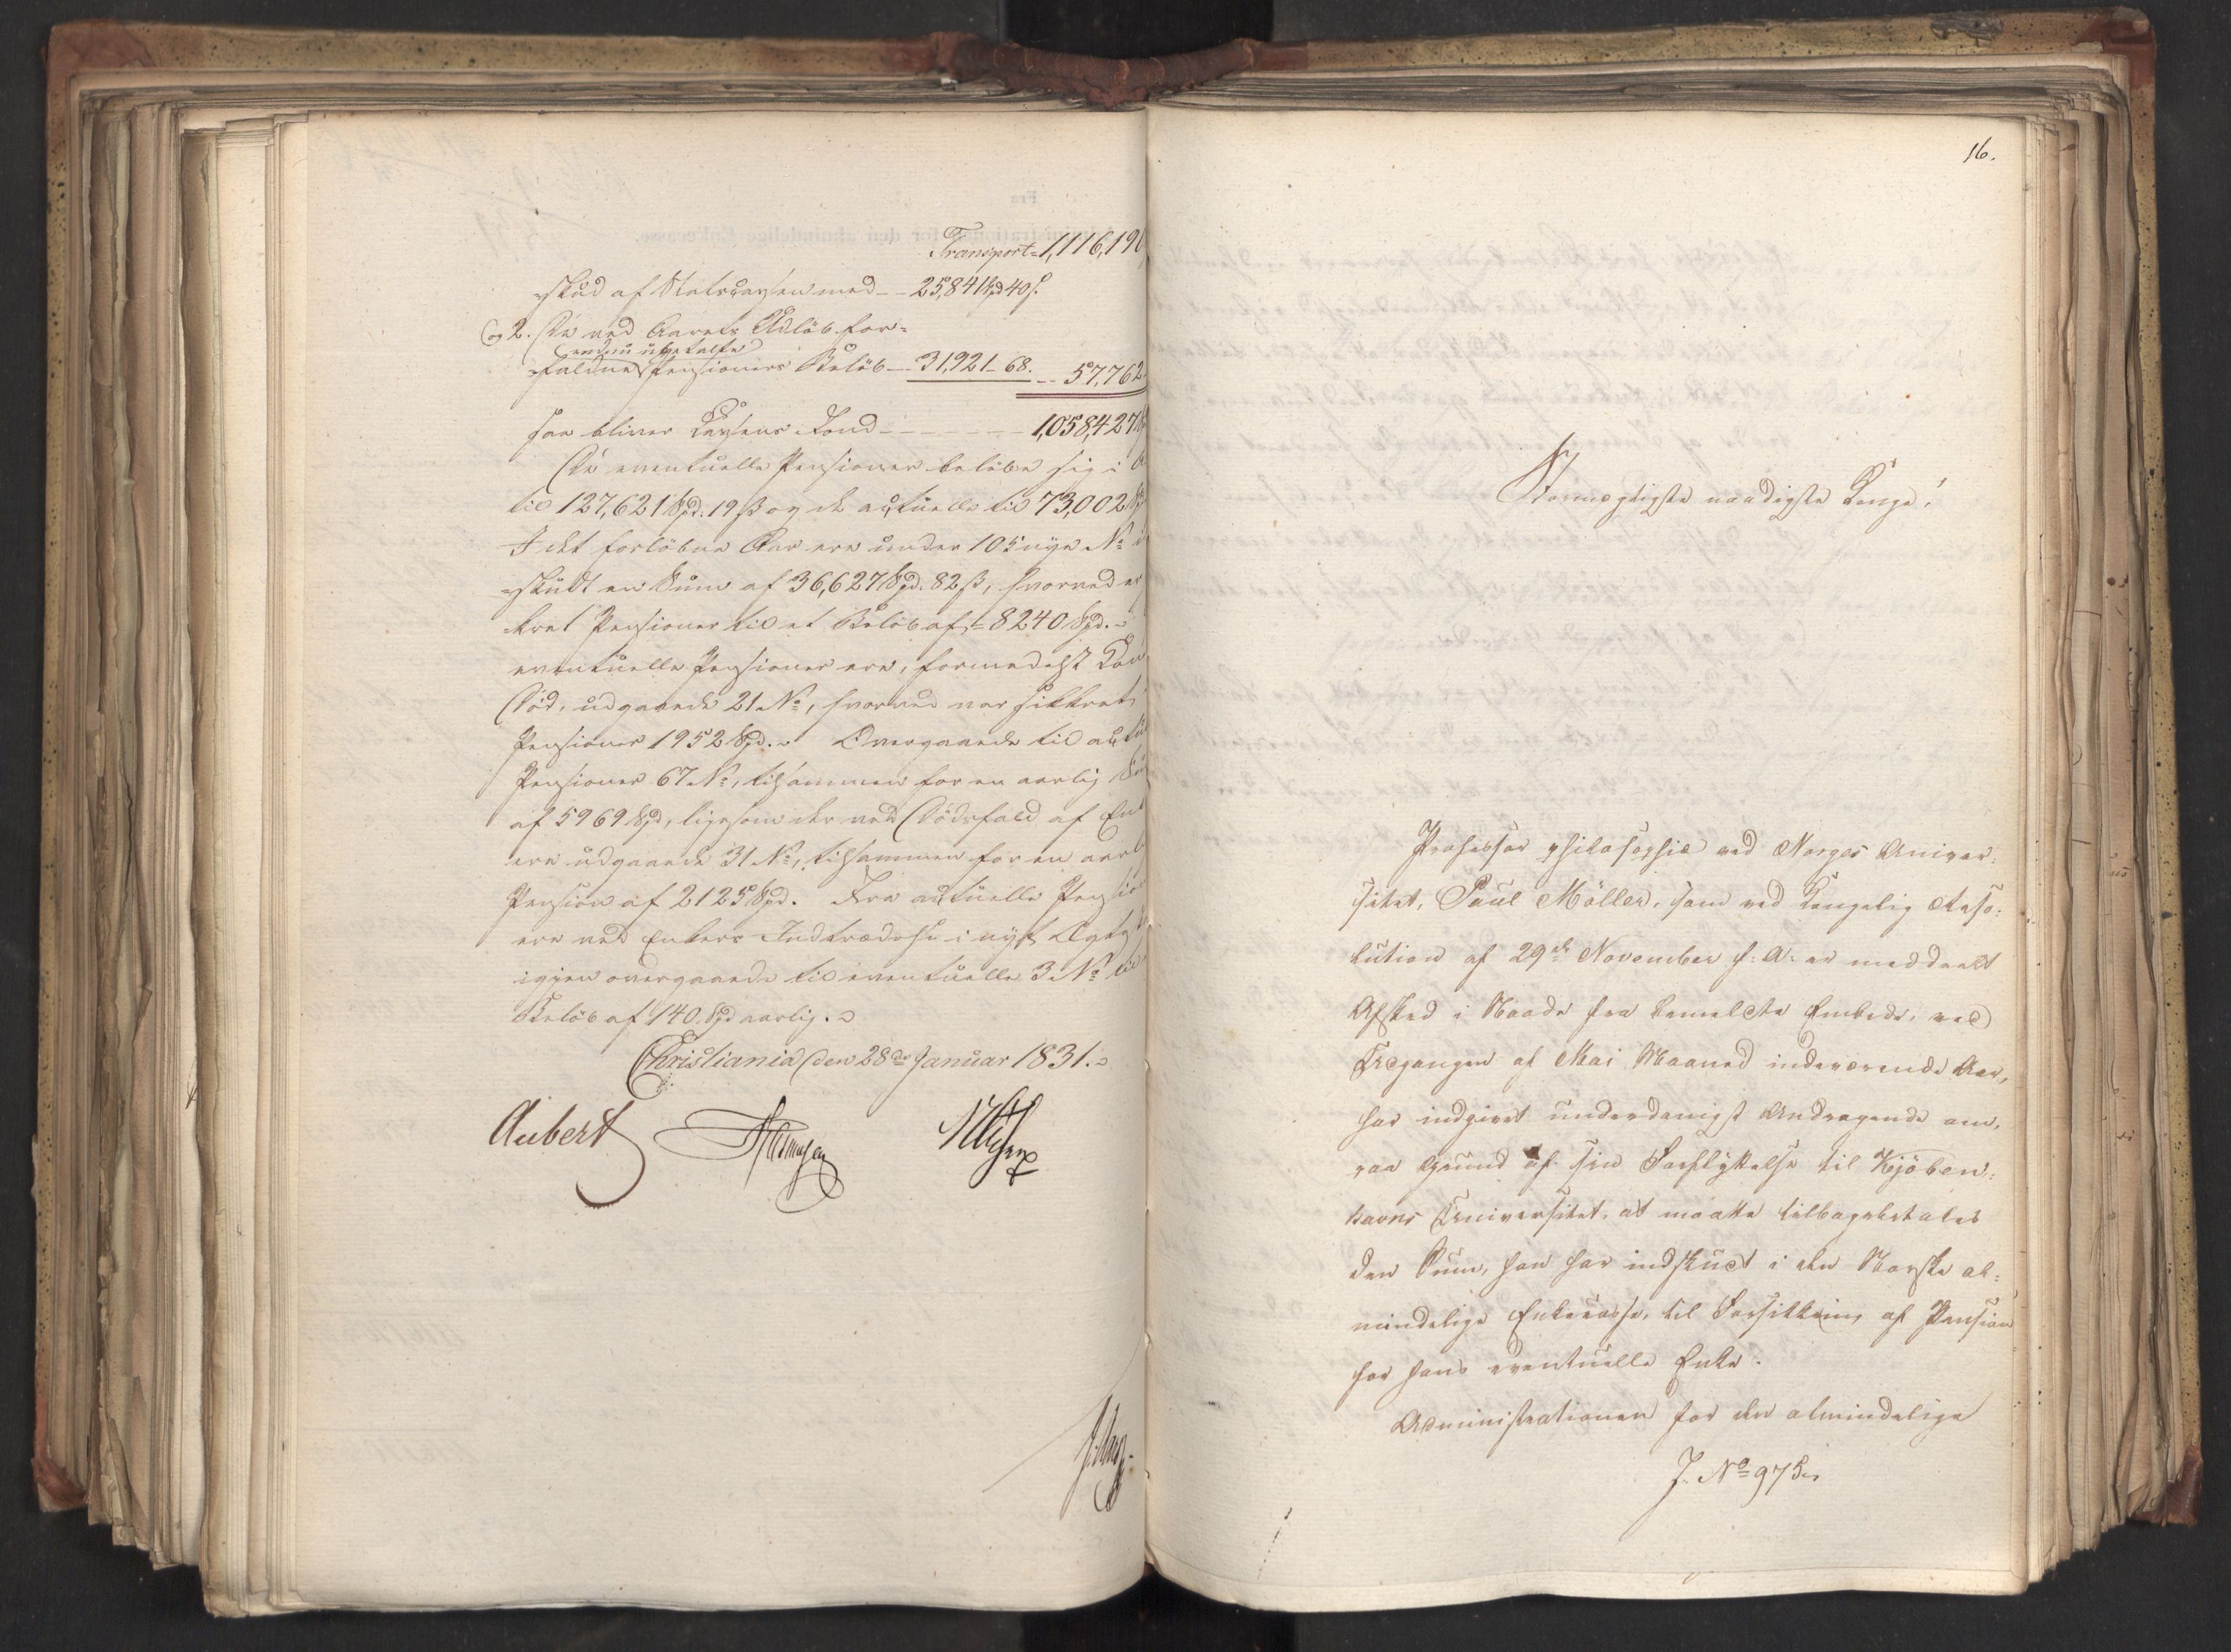 Transport = 1,116,190
-skud af Statscassen med - - 25,841 Spd 40 s.
og 2. De ved Aarets Udløb for-
endnu ubetalte
-faldne Pensioners Beløb - - 31,921 - 68. - - 57,762
saa bliver Cassens Fond - - - - - - 1,058,427
De eventuelle Pensioner beløbe sig i
til 127,621 Spd. 19 ß og de actuelle til 73,002 Spd
I det forløbne Aar ere under 105 nye No i
-skudt en Sum af 36,627 Spd. 82 ß, hvorved er
-kret Pensioner til et Beløb af = 8240 Spd. -
eventuelle Pensioner ere, formedelst Kon
Død, udgaaede 21 No, hvorved var sikkret
Pensioner 1952 Spd. - Overgaaede til actu
Pensioner 67 No, tilsammen for en aarlig Sum
af 5969 Spd, ligesom der ved Dødsfald af Enk
ere udgaaede 31 No, tilsammen for en aarl
Pension af 2125 Spd. Fra actuelle Pensio
ere ved Enkers Indtrædelse i nyt Ægtes
igjen overgaaede til eventuelle 3 No til
Beløb af 140 Spd aarlig. -
Christiania den 28de Januar 1831. -
Aubert
16.
Stormægtigste naadigste Konge!
Professor philosophiæ ved Norges Univer-
sitet, Paul Møller, som ved Kongelig Reso-
lution af 29de November f: A: er meddeelt
Afsked i Naade fra bemeldte Embede, ved
Udgangen af Mai Maaned indeværende Aar,
har indgivet underdanigst Andragende om,
paa Grund af sin Forflyttelse til Kjøben-
havns Universitet, at maatte tilbagebetales
den Sum, han har indskudt i den Norske al-
mindelige Enkecasse, til Forsikkring af Pension
for hans eventuelle Enke.
Administrationen for den almindelige
J. No 975.